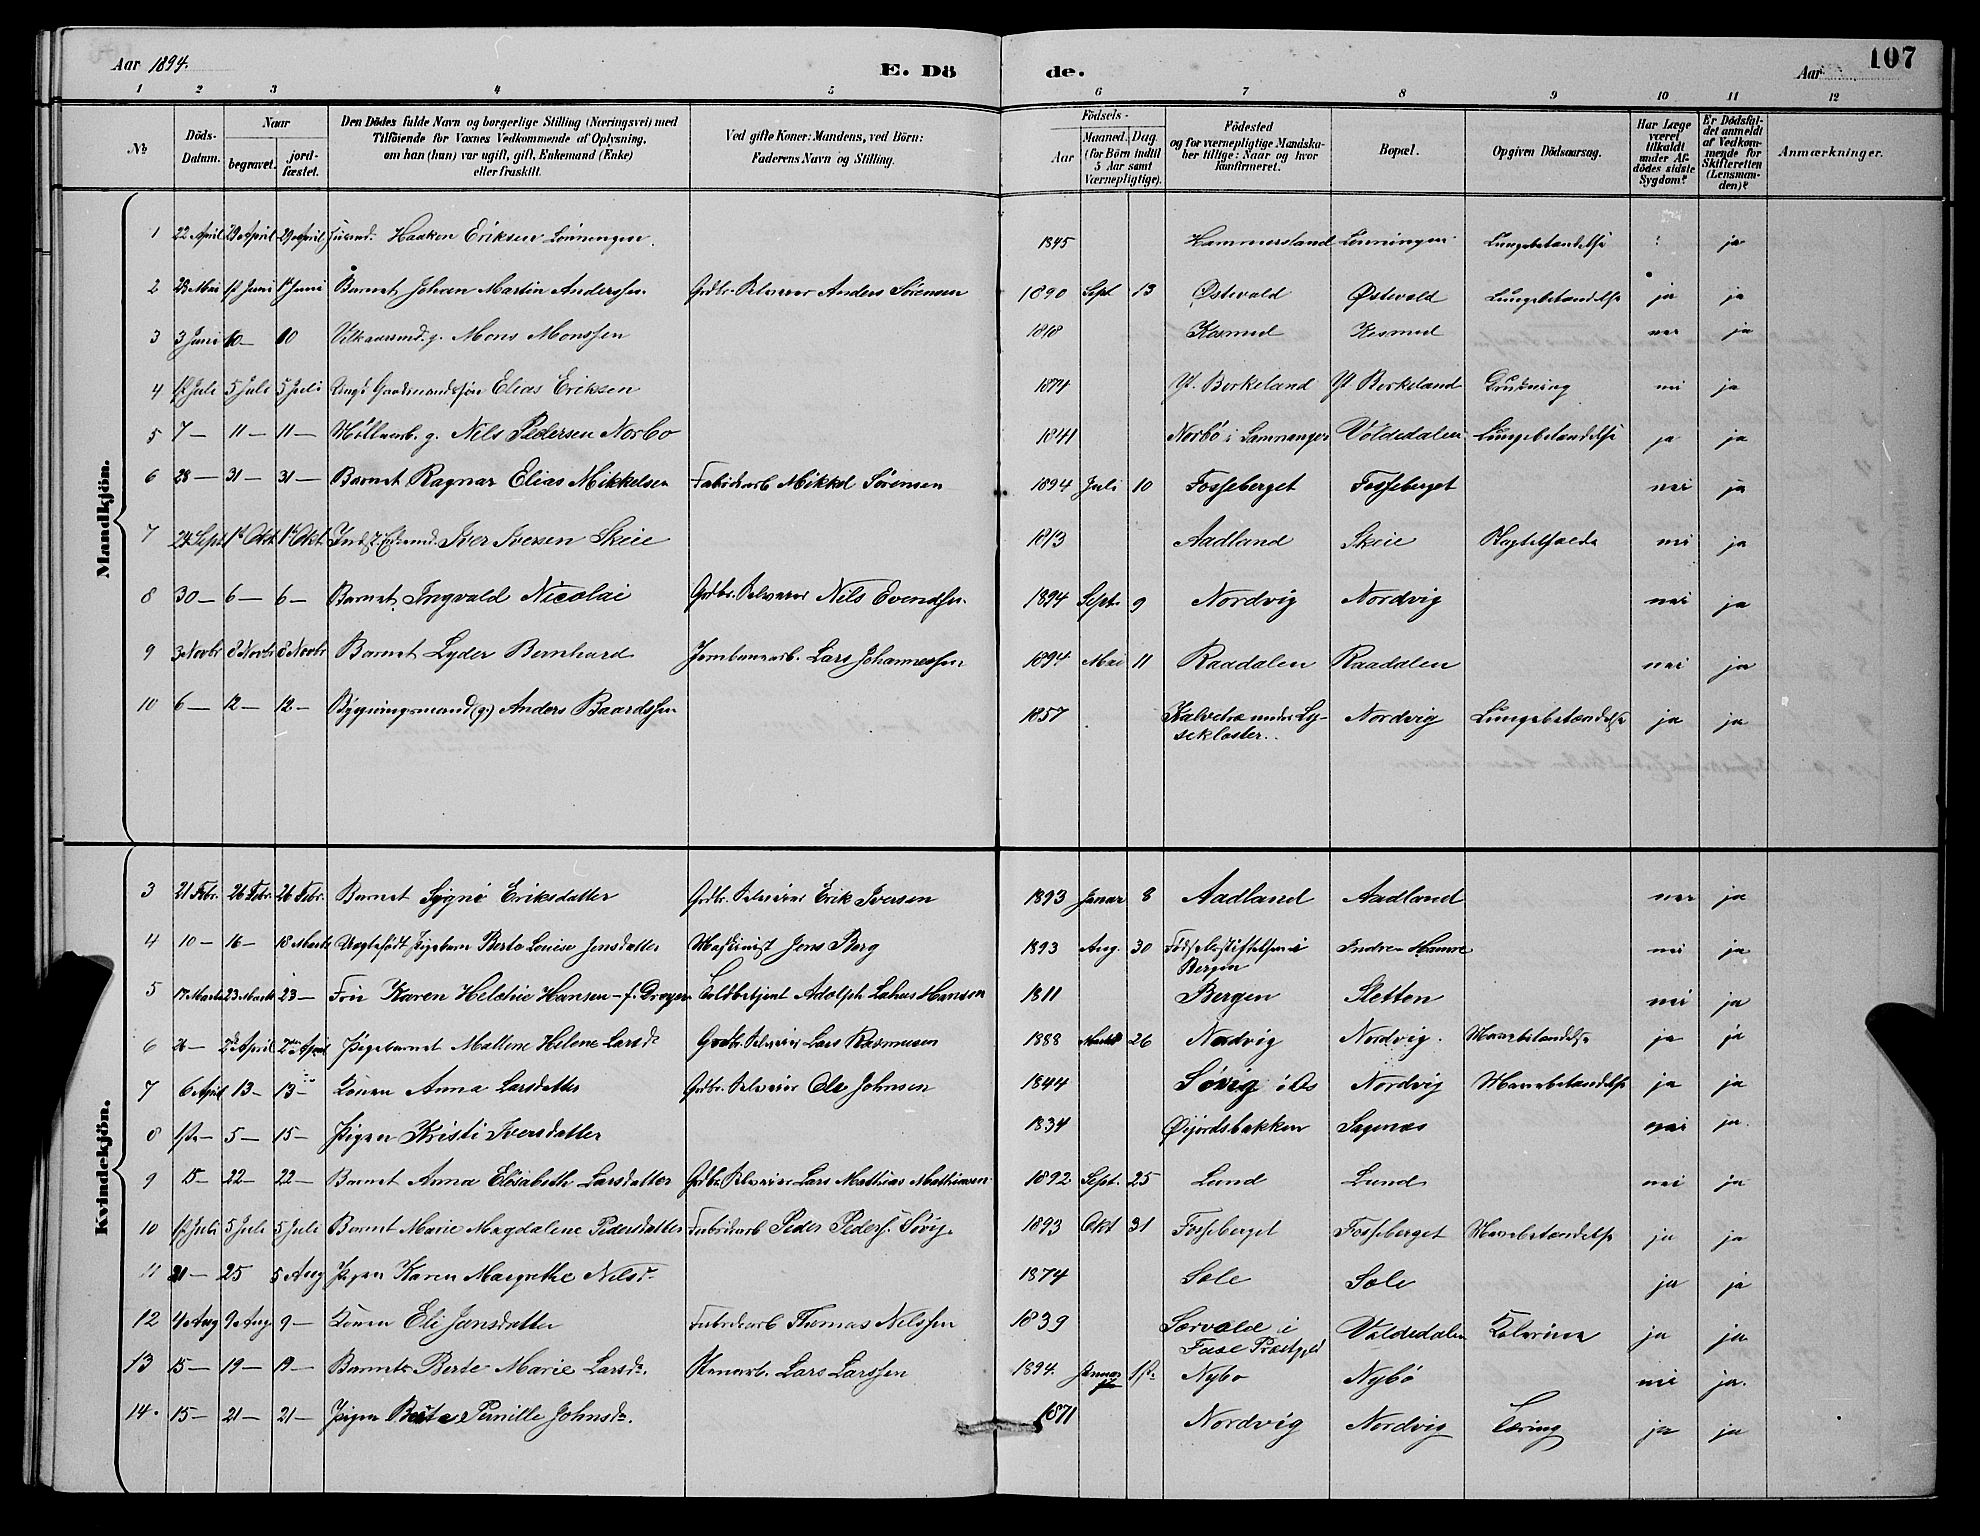 Aar 1894.
E. Dö de.
Aar
107
1 2 3 4 5 6 7 8 9 10 11 12
No
Döds-Datum.
Naar
begravet.
jord-fæstet.
Den Dödes fulde Navn og borgerlige Stilling (Næringsvei) med
Tilföiende for Voxnes Vedkommende af Oplysning,
om han (hun) var ugift, gift, Enkemand (Enke)
eller fraskilt.
Ved gifte Koner: Mandens, ved Börn:
Faderens Navn og Stilling.
Födsels-
Aar
Maaned. Dag.
(for Börn indtil
5 Aar samt
Værnepligtige).
Födested
og for værnepligtige Mandska-
ber tillige: Naar og hvor
konfirmeret.
Bopæl.
Opgiven Dödsaarsag.
Har Læge
været
tilkaldt
under Af-
dödes sidste
Sygdom?
Er Dödsfal-
det anmeldt
af Vedkom-
mende for
Skifteretten
(Lensman-
den)?
Anmærkninger.
Mandkjön.
1 22 April 29 April 29 April Haaken Eriksen Lönningen. 1845 Hammersland Lönningen Lungebetændelse ja
2 23 Mai 1st Juni 1st Juni Barnet Johan Martin Anderssen Grdbr. Selveier Anders Sörensen 1890 Sept 13 Østevold Østevold Lungebetændelse ja ja
3 3 Juni 10 — 10 Vilkaarsmd. g. Mons Monssen 1818 Kismul Kismul nei ja
4 1st Juli 5 Juli 5 Juli Ungk. Gaardmandssön Elias Eriksen 1874 Yt. Birkeland Yt. Birkeland Drukning nei ja
5 7 — 11 — 11 — Möllearb. g. Nils Pedersen Norbo 1841 Norbö i Samnanger Voldedalen Lungebetændelse ja ja
6 28 — 31 — 31 — Barnet Ragnar Elias Mikkelsen Fabrikarb Mikkel Sörensen 1894 Juli 10 Fosseberget Fosseberget nei ja
7 24 Sept 1st Okt. 1st Okt. Iver Iversen Skeie 1813 Aadland Skeie nei ja
8 30 — 6 — 6 — Barnet Ingvald Nicolai Grdbr. Selveier Nils Evendsen 1894 Sept. 9 Nordvig Nordvig nei ja
9 3 Novbr 8 Novbr 8 Novbr Barnet Lyder Bernhard Jernbanearb. Lars Johannessen 1894 Mai 11 Raadalen Raadalen nei ja
10 6 — 12 — 12 — Bygningsmand (g.) Anders Baardssen 1857 Kalvetræ under Ly-
sekloster. Nordvig Lungebetændelse ja ja
Kvindekjön.
3 21 Febr. 26 Febr. 26 Febr. Barnet Sygni Eriksdatter Grdbr. Selveier Erik Iversen 1893 Januar 8 Aadland Aadland nei ja
4 10 — 16 — 18 Marts Uægtefödt Pigebarn Berta Louise Jensdatter Maskinist Jens Berg 1893 Aug. 30 Fødselsstiftelsen i
Bergen Indre Hamre nei ja
5 17 Marts 23 Marts 23 — Fru Karen Helchie Hansen — f. Dreyer Toldbetjent Adolph Hansen 1811 Bergen Sletten nei ja
6 26 — 2den April 2den April Pigebarnet Maltene Helene Larsdr Grdbr. Selveier Lars Rasmussen 1888 Marts 26 Nordvig Nordvig. Mavebetændelse ja ja
7 6 April 13 — 13 — Konen Anna Larsdatter Grdbr. Selveier Ole Johnsen 1844 Sövig i Os Nordvig Mavebetændelse ja ja
8 1ste — 5 — 15 — Pigen Kristi Iversdatter 1834 Øijordsbakken Sagenæs nei ja.
9 15 — 22 — 22 — Barnet Anna Elisabeth Larsdatter Grdbr. Selveier Lars Mathias Mathiasen 1892 Sept. 25 Lund Lund nei ja
10 1st Juli 5 Juli 5 Juli Barnet Marie Magdalene Pedersdatter Fabrikarb Peder Peders. Sövig. 1893 Okt 31 Fosseberget Fosseberget Mavebetændelse ja ja
11 21 — 25 5 Aug Pigen Karen Margrethe Nilsdr 1874 Sæle Sæle ja ja
12 4 Aug 9 Aug 9 — Konen Eli Jensdatter Fabrikarb Thomas Nilssen 1839 Sævold i
Fuse Præstgjeld Voldedalen Kolerine ja ja
13 15 — 19 — 19 — Barnet Berte Marie Larsdr. Stenarb. Lars Larssen 1894. Januar 1ste Nybö Nybö nei ja.
14. 15 — 21 — 21 — Pigen Berte Pernille Johnsdr. 1871 Nordvig Nordvig Tæring ja ja